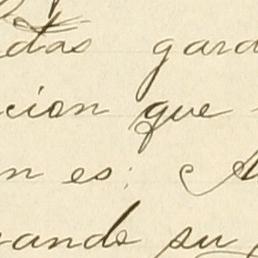 tas gard
cion que
n es: A
rando su